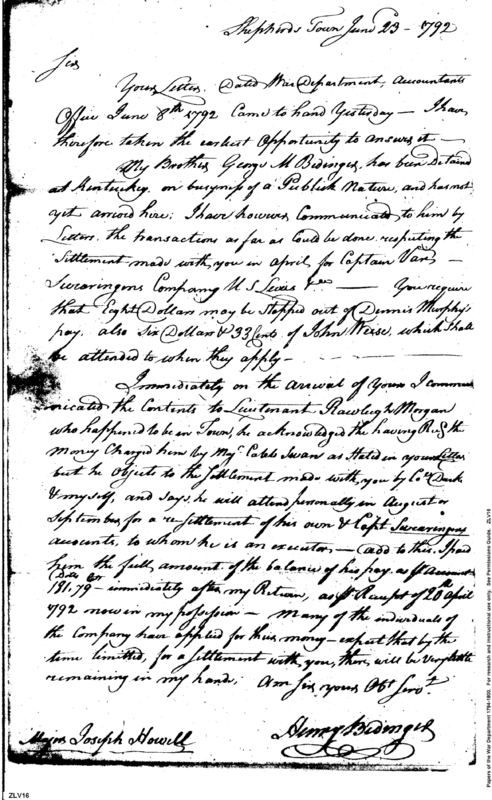 Shepherds Town June 23 - 1792
Sir
Your Letter, Dated War Department, Accountants
Office June 8th 1792 Came to hand Yesterday - I have
therefore taken the earliest Opportunity to answer it -
My Brother George M Bidinger, has been Detained
at Kentuckey, on busyness of a Publick Nature, and has not
yet arrived here; I have however Communicated, to him by
Letters, the transactions as far as Could be done respecting the
Settlement made with, you in April, for Captain Van
Swaringons Company U S Levies - You require
that Eight Dollars may be Stopped out of Dennis Murphy's
pay. also Six Dollars & 33 Cents of John Weese, which Shall
be attended to when they apply -
Immediately on the arrival of Yours I commu
nicated the Contents to Lieutenant Rawleigh Morgan
who happened to be in Town, he acknowledged the having Rec'd the
money Charged him by Maj. Caleb Swan as Stated in your Letter
but he Objects to the Settlement made with, you by Co
& myself, and says, he will attend personally in August or
September, for a re-Settlement of his own & Capt Swearingens
accounts, to whom he is an executor - (add to this, I paid
him the full, amount of the balance of his pay as pr account
Dolls
191.79 - immediately after my Return, as pr Receipt of 20th April
1792 now in my possession - many of the individuals of
the Company have applied for their money - expect that by the
time limitted, for a Settlement with, you, there, will be Very little
remaining in my hands; I Am Sir, yours Obt Servt.
Henry Bidinger
Major Joseph Howell
ZLV16
Papers of the War Department 1784-1800. For research and instructional use only. See Permissions Guide. ZLV16